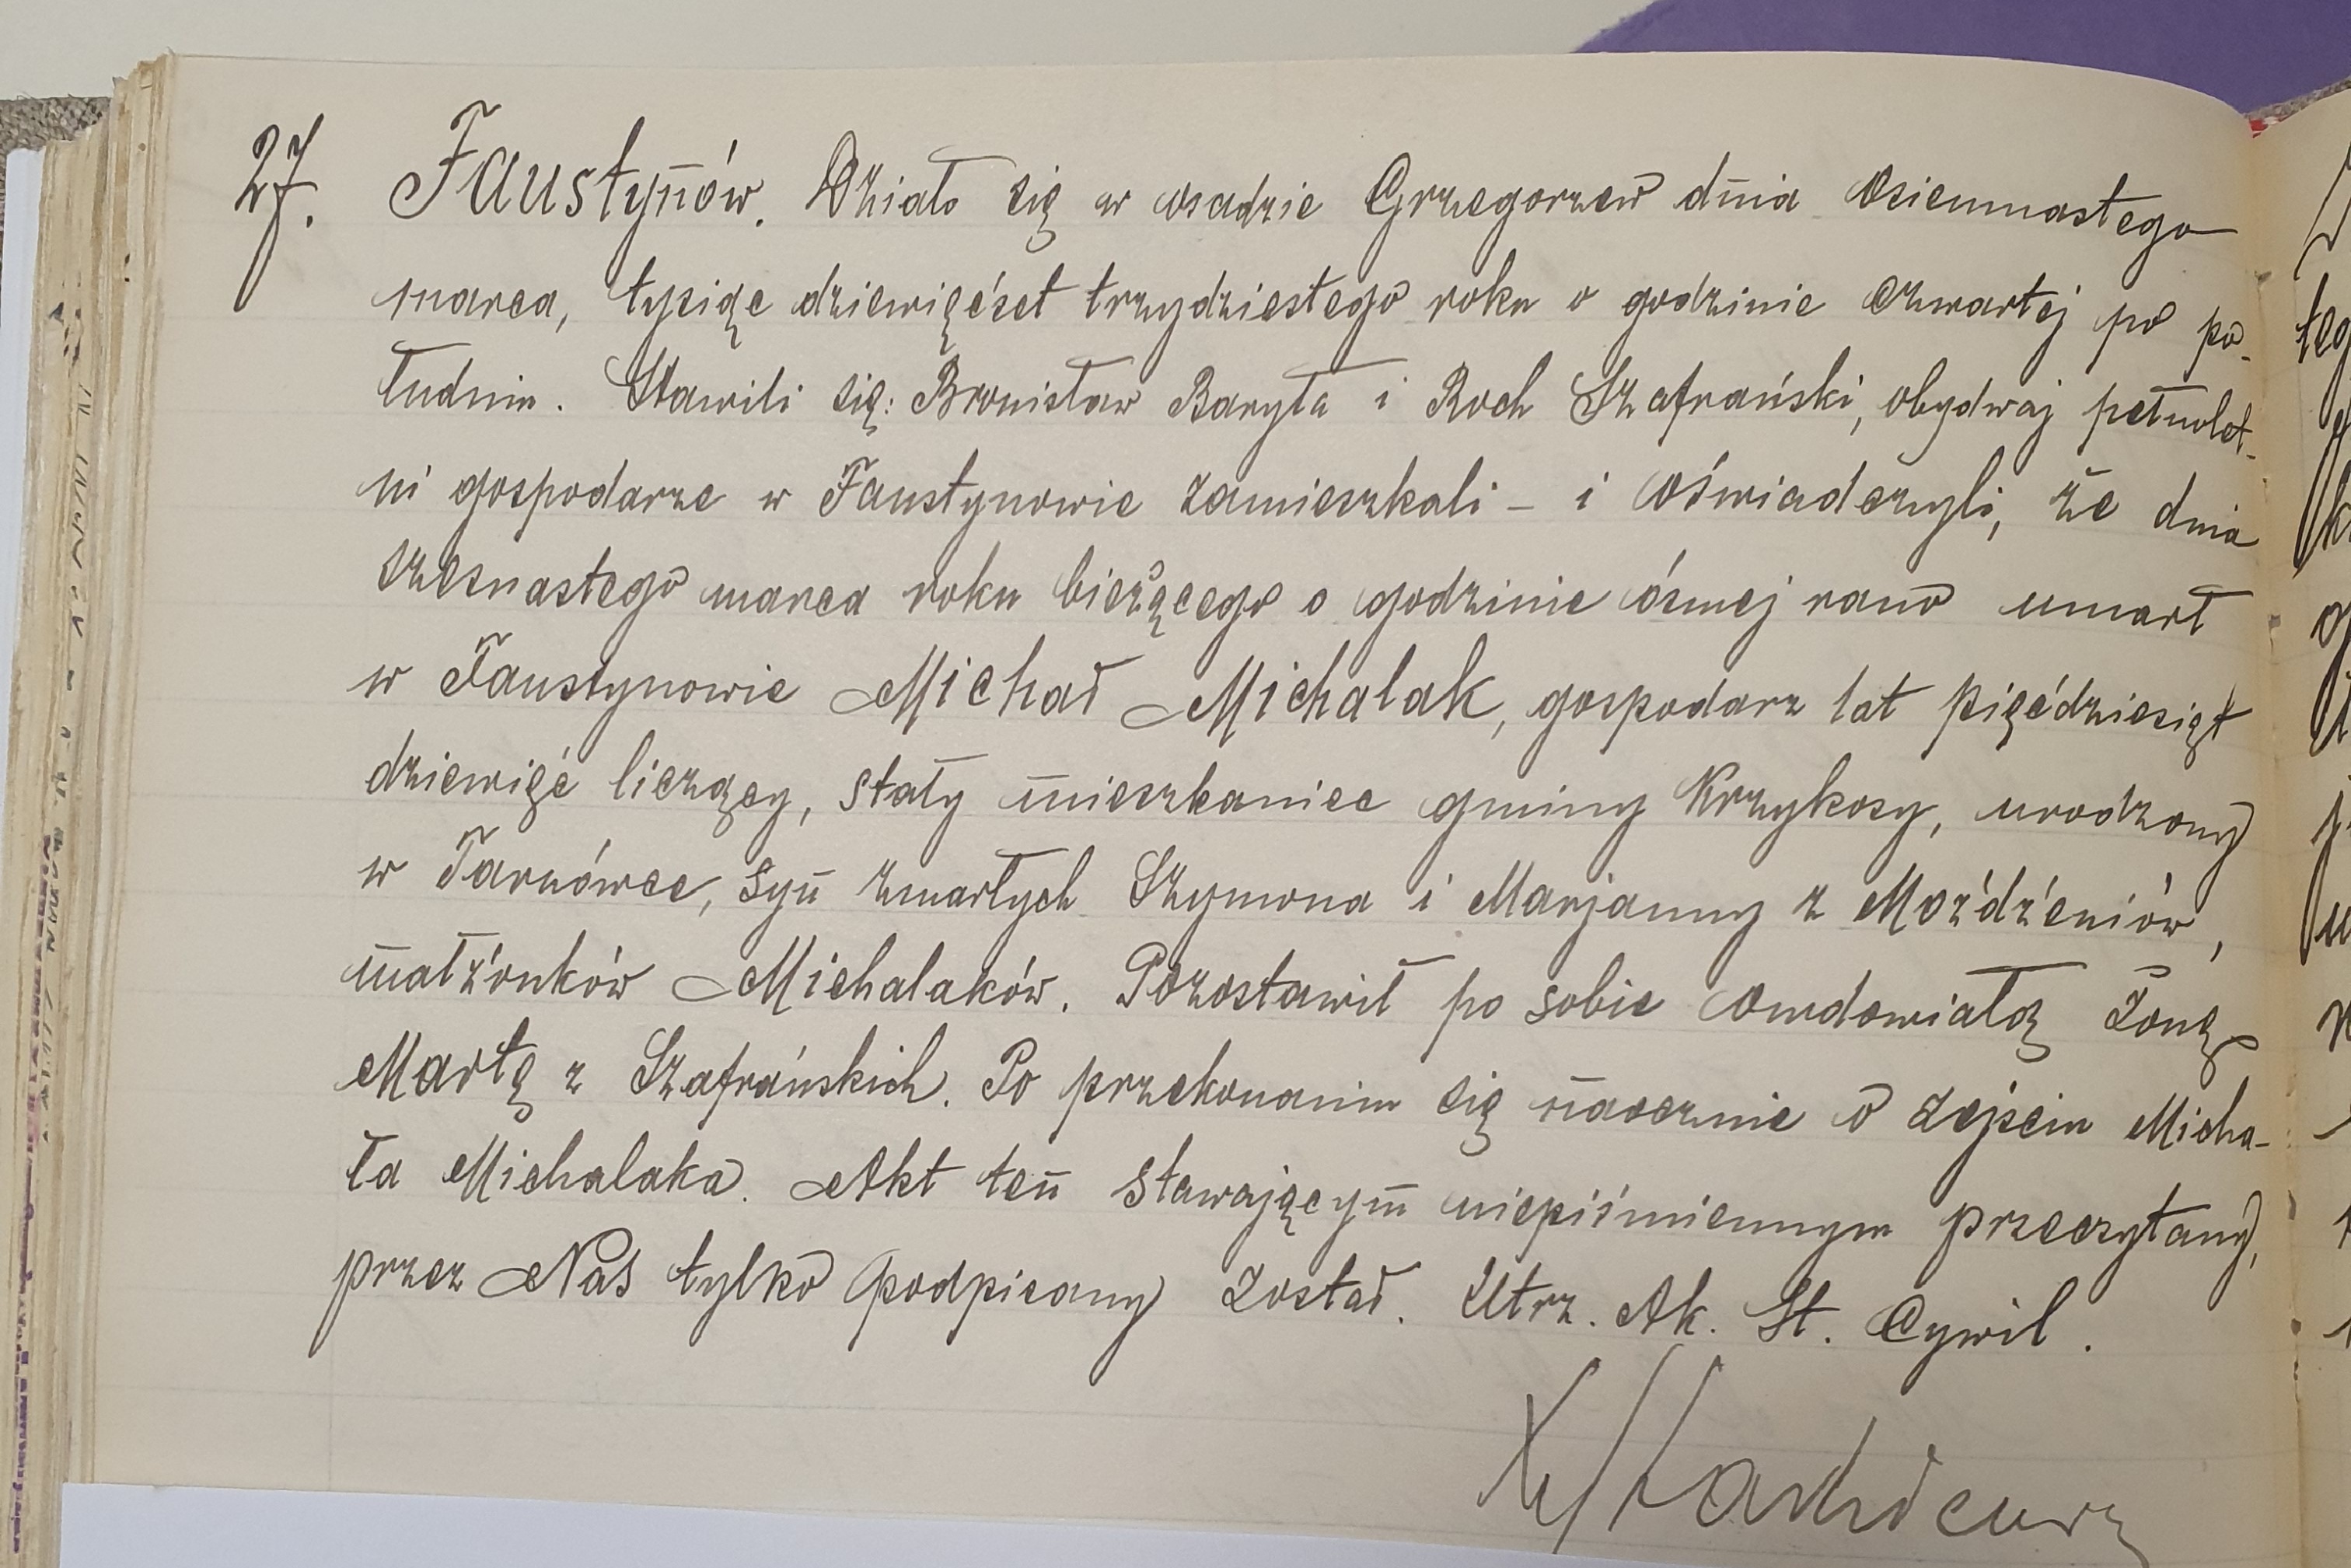 27. Faustynów. Działo się w osadzie Grzegorzew dnia osiemnastego
marca, tysiąc dziewięćset trzydziestego roku o godzinie czwartej po po-
łudniu. Stawili się: Bronisław Baryła i Roch Szafrański, obydwaj pełnolet-
ni gospodarze w Faustynowie zamieszkali – i oświadczyli, że dnia
szesnastego marca roku bieżącego o godzinie ósmej rano umarł
w Faustynowie Michał Michalak, gospodarz lat pięćdziesiąt
dziewięć liczący, stały mieszkaniec gminy Krzykosy, urodzony
w Tarnówce, syn zmarłych Szymona i Marjanny z Moździeniów,
małżonków Michalaków. Pozostawił po sobie owdowiałą żonę
Martę z Szafrańskich. Po przekonaniu się naocznie o zejściu Micha-
ła Michalaka. Akt ten stawającym niepiśmiennym przeczytany,
przez Nas tylko podpisany został. Utrz. Ak. St. Cywil.